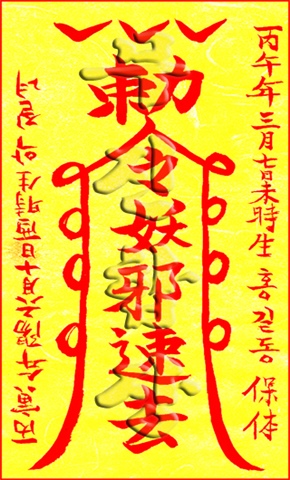 丙午年 三月七日未時生 홍길동 保体
勅令妖邪速去
丙寅年陽六月十日酉時生 악질녀